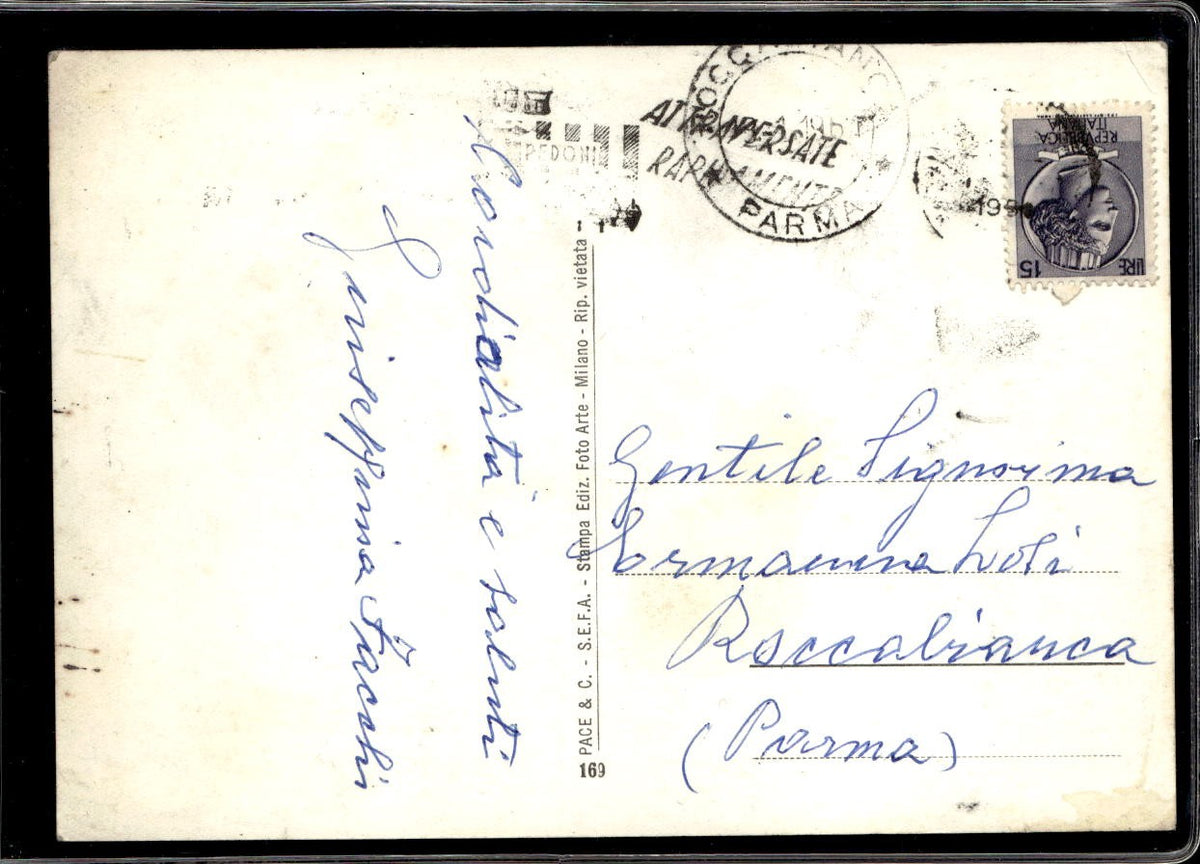 Cordialità e saluti
Giuseppina Facchi
PACE & C. - S.E.F.A. - Stampa Ediz. Foto Arte - Milano - Rip. vietata
169
PEDONI
ATTRAVERSATE
PARMA
REPVBBLICA
ITALIANA
LIRE 15
Gentile Signorina
Ermannina Loli
Roccabianca
(Parma)